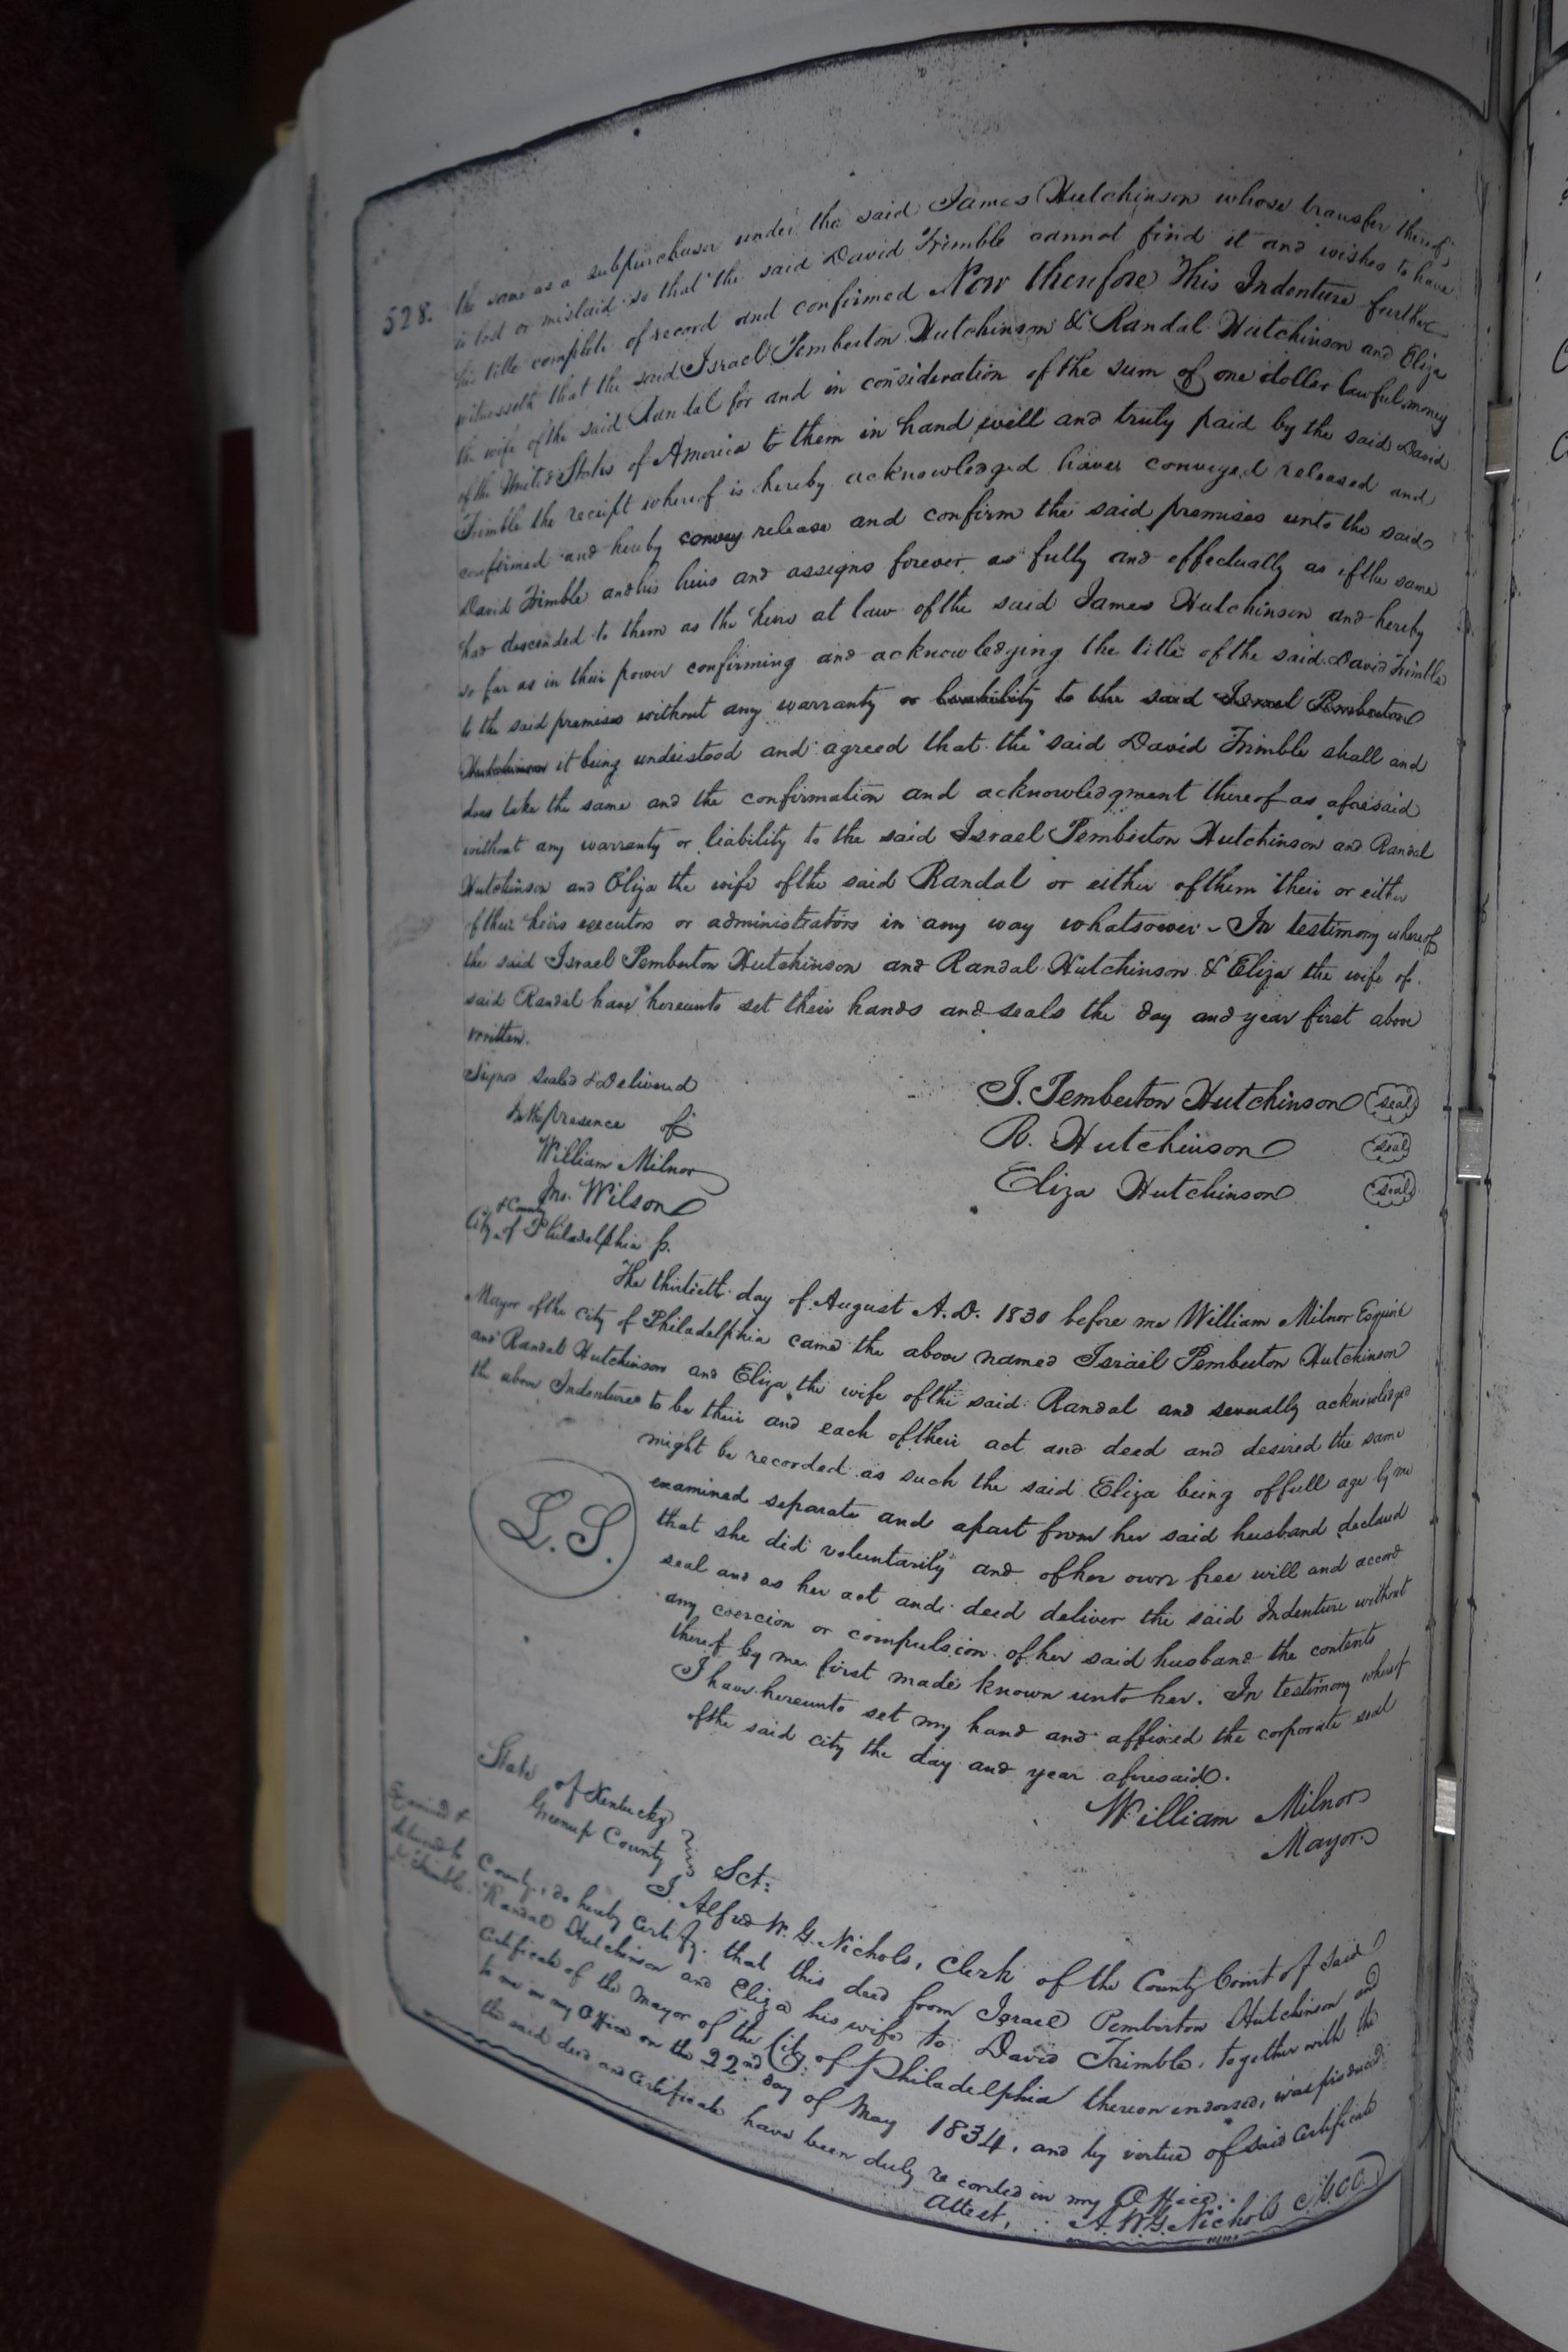 528.
the same as a subpurchaser under the said James Hutchinson whose transfer thereof
is lost or mislaid so that the said David Trimble cannot find it and wishes to have
his title complete of record and confirmed Now therefore This Indenture further
witnesseth that the said Israel Pemberton Hutchinson & Randal Hutchinson and Eliza
the wife of the said Randal for and in consideration of the sum of one dollar lawful money
of the United States of America to them in hand well and truly paid by the said David
Trimble the receipt whereof is hereby acknowledged have conveyed released and
confirmed and hereby convey release and confirm the said premises unto the said
David Trimble and his heirs and assigns forever as fully and effectually as if the same
had descended to them as the heirs at law of the said James Hutchinson and hereby
so far as in their power confirming and acknowledging the title of the said David Trimble
to the said premises without any warranty or liability to the said Israel Pemberton
Hutchinson it being understood and agreed that the said David Trimble shall and
does take the same and the confirmation and acknowledgment thereof as aforesaid
without any warranty or liability to the said Israel Pemberton Hutchinson and Randal
Hutchinson and Eliza the wife of the said Randal or either of them their or either
of their heirs executors or administrators in any way whatsoever - In testimony whereof
the said Israel Pemberton Hutchinson and Randal Hutchinson & Eliza the wife of
said Randal have hereunto set their hands and seals the day and year first above
written.
Signed sealed & Delivered
In the presence of
William Milnor
Jno. Wilson
J. Pemberton Hutchinson seal
R. Hutchinson seal
Eliza Hutchinson seal
City & County of Philadelphia ss.
The thirtieth day of August A.D. 1830 before me William Milnor Esquire
Mayor of the City of Philadelphia came the above named Israel Pemberton Hutchinson
and Randal Hutchinson and Eliza the wife of the said Randal and severally acknowledged
the above Indenture to be their and each of their act and deed and desired the same
might be recorded as such the said Eliza being of full age by me
examined separate and apart from her said husband declared
that she did voluntarily and of her own free will and accord
seal and as her act and deed deliver the said Indenture without
any coercion or compulsion of her said husband the contents
thereof by me first made known unto her. In testimony whereof
I have hereunto set my hand and affixed the corporate seal
of the said city the day and year aforesaid.
L.S.
William Milnor
Mayor
State of Kentucky
Greenup County Sct:
I. Alfred W. G. Nichols, Clerk of the County Court of said
County, do hereby certify, that this deed from Israel Pemberton Hutchinson and
Randal Hutchinson and Eliza his wife to David Trimble, together with the
certificate of the Mayor of the City of Philadelphia thereon endorsed, was produced
to me in my Office on the 22nd day of May 1834, and by virtue of said certificate
the said deed and certificate have been duly recorded in my Office.
Attest, A. W. G. Nichols
Examined &
delivered to
D Trimble